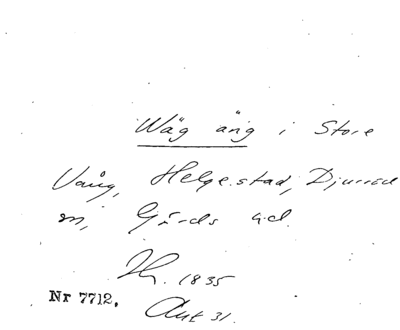 Wäg äng i Store
Vång, Helgestad, Djurröd
sn, Gärds hd.
1835
Nr 7712.
Akt 31.